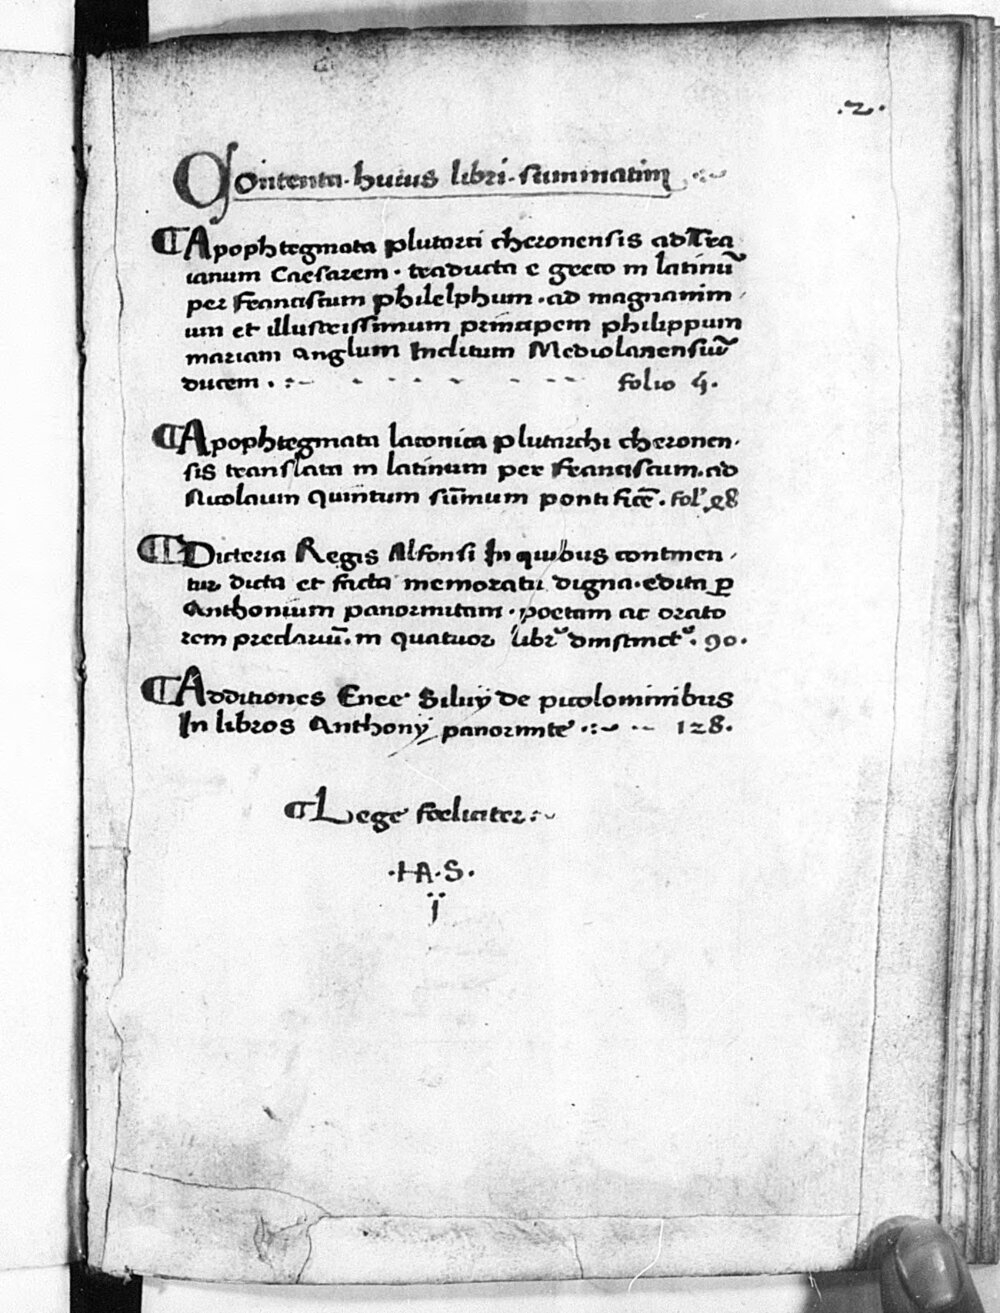 .2.
Contenta. huius libri. summatim .:~
¶ Apophtegmata plutarci cheronensis ad Tra
ianum Caesarem. traducta e greco in latinū
per Franciscum philelphum. ad magnanim
um et illustrissimum principem philippum
mariam anglum Inclitum Mediolanensiū
ducem. :~ - - - - - folio 4.
¶ Apophtegmata laconica plutarchi cheronen.
sis translata in latinum per Franciscum. ad
Nicolaum quintum sūmum pontificē. fol'
¶ Dicteria Regis Alfonsi In quibus continen,
tur dicta et facta memoratu digna. edita p
Anthonium panormitam. poetam ac orato
rem preclarū. in quatuor libr' dinstinct'. 90.
¶ Additiones Enee Siluij de picolominibus
In libros Anthonij panormite .:~ -- 128.
¶ Lege foeliciter:~
.HA.S.
ï